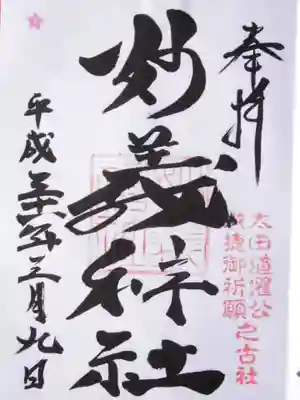 奉拝
太田道灌公
戦捷御祈願
之古社
妙義神社
平成二十六年三月九日